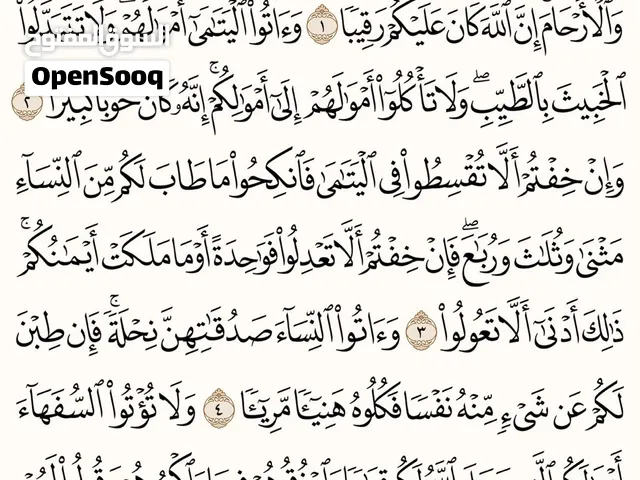 وَٱلْأَرْحَامَ إِنَّ ٱللَّهَ كَانَ عَلَيْكُمْ رَقِيبًا ١ وَءَاتُوا۟ ٱلْيَتَٰمَىٰٓ أَمْوَٰلَهُمْ وَلَا تَتَبَدَّلُوا۟
السوق المفتوح
OpenSooq
ٱلْخَبِيثَ بِٱلطَّيِّبِ ۖ وَلَا تَأْكُلُوٓا۟ أَمْوَٰلَهُمْ إِلَىٰٓ أَمْوَٰلِكُمْ ۚ إِنَّهُۥ كَانَ حُوبًا كَبِيرًا ٢
وَإِنْ خِفْتُمْ أَلَّا تُقْسِطُوا۟ فِى ٱلْيَتَٰمَىٰ فَٱنكِحُوا۟ مَا طَابَ لَكُم مِّنَ ٱلنِّسَآءِ
مَثْنَىٰ وَثُلَٰثَ وَرُبَٰعَ ۖ فَإِنْ خِفْتُمْ أَلَّا تَعْدِلُوا۟ فَوَٰحِدَةً أَوْ مَا مَلَكَتْ أَيْمَٰنُكُمْ ۚ
ذَٰلِكَ أَدْنَىٰٓ أَلَّا تَعُولُوا۟ ٣ وَءَاتُوا۟ ٱلنِّسَآءَ صَدُقَٰتِهِنَّ نِحْلَةً ۚ فَإِن طِبْنَ
لَكُمْ عَن شَىْءٍ مِّنْهُ نَفْسًا فَكُلُوهُ هَنِيٓـًٔا مَّرِيٓـًٔا ٤ وَلَا تُؤْتُوا۟ ٱلسُّفَهَآءَ